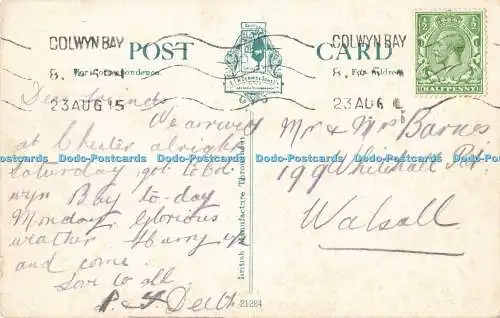 COLWYN BAY
8. 15 PM
23 AUG 15
POST CARD
For Correspondence.
COLWYN BAY
23 AUG
For Address
HALFPENNY
Dear friends
We arrived
at Chester alright
Saturday got to Col-
wyn Bay to-day
Monday. Glorious
weather Hurry up
and come.
Love to all
British Manufacture Throughout
21284
Mr & Mrs Barnes
199 Whitehall Rd.
Walsall.
Dodo-Postcards Dodo-Postcards Dodo-Postcards Dodo-Postcards Dodo-Postcards